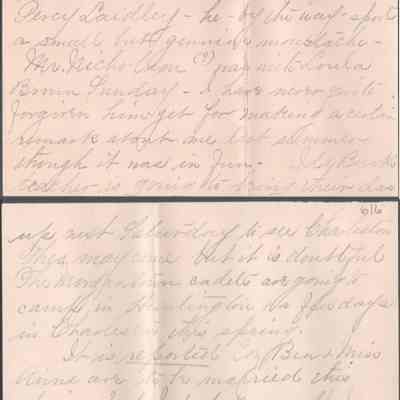 Percy Laidley - he - by the way - sports
a small but genuine moustache -
Mr. Nicholson (?) was with Lou a
Brnin Sunday - I have never quite
forgiven him yet for making a certain
remark about me last summer
though it was in fun -
teacher is going to bring their class
616
up next Saturday to see Charleston
They may come but it is doubtful
The Morgantown cadets are going to
camp in Huntington Va few days
in Charleston this spring.
It is reported Con Ben & Miss
Anne are to be married this